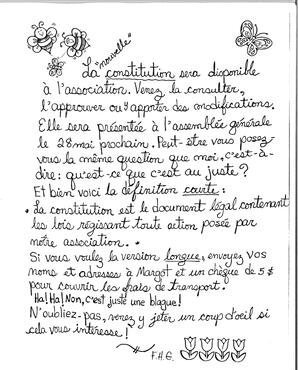 "nouvelle"
La constitution sera disponible
à l'association. Venez la consulter,
l'approuver ou apporter des modifications.
Elle sera présentée à l'assemblée générale
le 28 mai prochain. Peut-être vous posez-
vous la même question que moi, c'est-à-
dire: qu'est-ce que c'est au juste?
Et bien voici la définition courte:
• La constitution est le document légal contenant
les lois régissant toute action posée par
notre association. •
Si vous voulez la version longue, envoyez vos
noms et adresses à Margot et un chèque de 5$
pour couvrir les frais de transport.
Ha! Ha! Non, c'est juste une blague!
N'oubliez-pas, venez y jeter un coup d'oeil si
cela vous intéresse!
F.H.G.